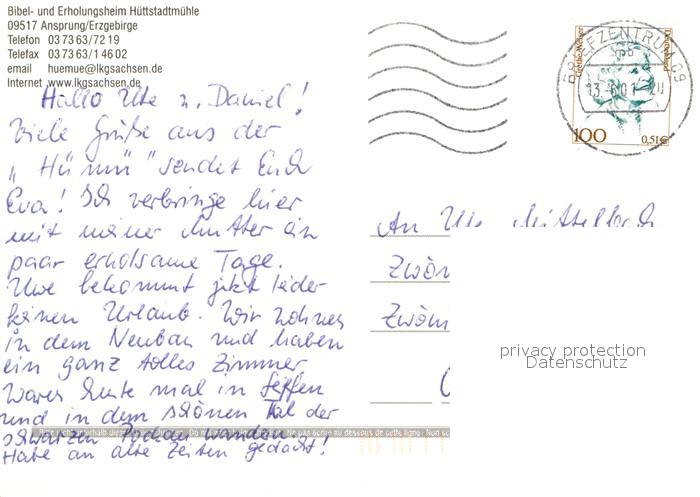 Bibel- und Erholungsheim Hüttstadtmühle
09517 Ansprung/Erzgebirge
Telefon 03 73 63/72 19
Telefax 03 73 63/1 46 02
email huemue@lkgsachsen.de
Internet www.lkgsachsen.de
Hallo Ute u. Daniel!
Viele Grüße aus der
„Hümü" sendet Euch
Eva! Ich verbringe hier
mit meiner Mutter ein
paar erholsame Tage.
Uwe bekommt jetzt leider
keinen Urlaub. Wir wohnen
in dem Neubau und haben
ein ganz tolles Zimmer.
Waren heute mal in Seiffen
und in dem schönen Tal der
schwarzen Pockau wandern.
Habe an alte Zeiten gedacht!
BRIEFZENTRUM 09
Deutschland
100
0,51€
An Ute
Zwön
Zwön
privacy protection
Datenschutz